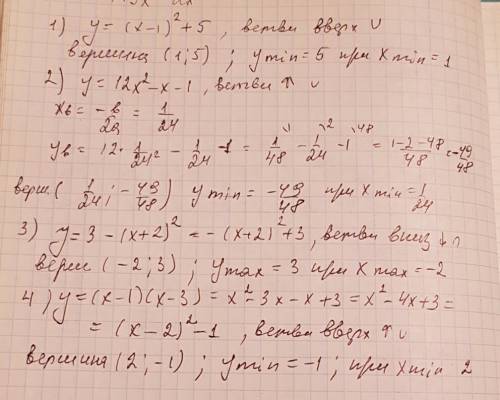 1) y = (x-1)² + 5 , ветви вверх ∪
вершина (1; 5) ; ymin = 5 при xmin = 1
2) y = 12x² - x - 1, ветви ↑ ∪
xв = -в/2a = 1/24
yв = 12 · 1/24² - 1/24 - 1 = 1/48 - 1/24 - 1 = 1-2-48/48 = -49/48
верш. ( 1/24 ; -49/48 ) ymin = -49/48 при xmin = 1/24
3) y = 3 - (x+2)² = -(x+2)² + 3 , ветви вниз ↓ ∩
верш (-2; 3) ; ymax = 3 при xmax = -2
4) y = (x-1)(x-3) = x² - 3x - x + 3 = x² - 4x + 3 =
= (x-2)² - 1 , ветви вверх ↑ ∪
вершина (2; -1) ; ymin = -1 ; при xmin 2